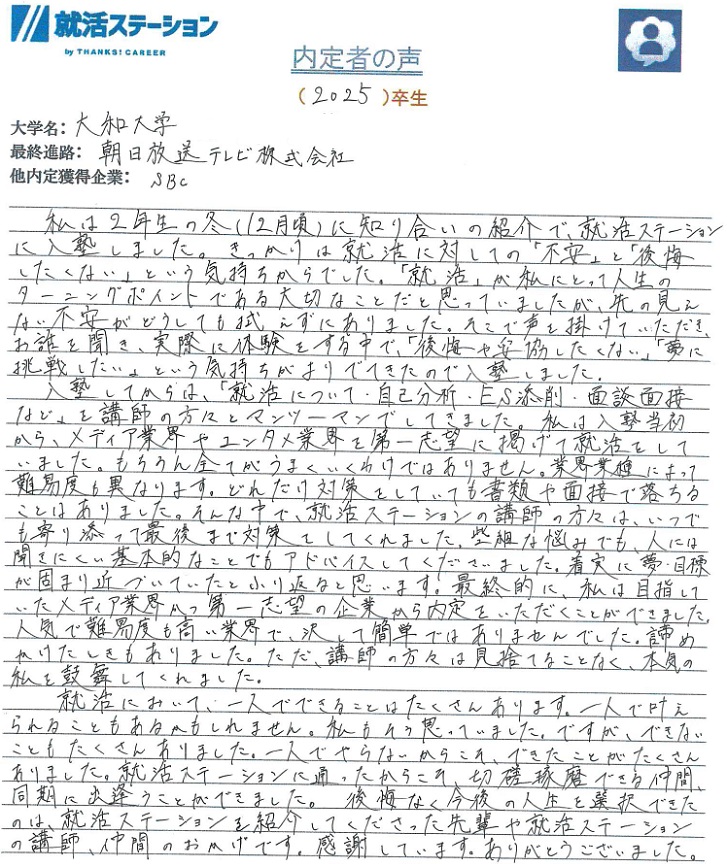 就活ステーション
by THANKS! CAREER
内定者の声
(2025)卒生
大学名: 大和大学
最終進路: 朝日放送テレビ株式会社
他内定獲得企業: SBC
私は2年生の冬(12月頃)に知り合いの紹介で、就活ステーション
に入塾しました。きっかけは就活に対しての「不安」と「後悔
したくない」という気持ちからでした。「就活」が私にとって人生の
ターニングポイントである大切なことだと思っていましたが、先の見え
ない不安がどうしても拭えずにありました。そこで声を掛けていただき、
お話を聞き、実際に体験をする中で、「後悔や妥協したくない」「夢に
挑戦したい」という気持ちがよりでてきたので入塾しました。
入塾してからは、「就活について・自己分析・ES添削・面談面接
など」を講師の方々とマンツーマンでしてきました。私は入塾当初
から、メディア業界やエンタメ業界を第一志望に掲げて就活をして
いました。もちろん全てがうまくいくわけではありません。業界業種によって
難易度も異なります。どれだけ対策をしていても書類や面接で落ちる
ことはありました。そんな中で、就活ステーションの講師の方々は、いつで
も寄り添って最後まで対策をしてくれました。些細な悩みでも、人には
聞きにくい基本的なことでもアドバイスしてくださいました。着実に夢・目標
が固まり近づいていたとふり返ると思います。最終的に、私は目指して
いたメディア業界かつ第一志望の企業から内定をいただくことができました。
人気で難易度も高い業界で、決して簡単ではありませんでした。諦め
かけたときもありました。ただ、講師の方々は見捨てることなく、本気の
私を鼓舞してくれました。
就活において、一人でできることはたくさんあります。一人で叶え
られることもあるかもしれません。私もそう思っていました。ですが、できない
こともたくさんありました。一人でやらないからこそ、できたことがたくさん
ありました。就活ステーションに通ったからこそ、切磋琢磨できる仲間、
同期に出逢うことができました。後悔なく今後の人生を選択できた
のは、就活ステーションを紹介してくださった先輩や就活ステーション
の講師、仲間のおかげです。感謝しています。ありがとうございました。